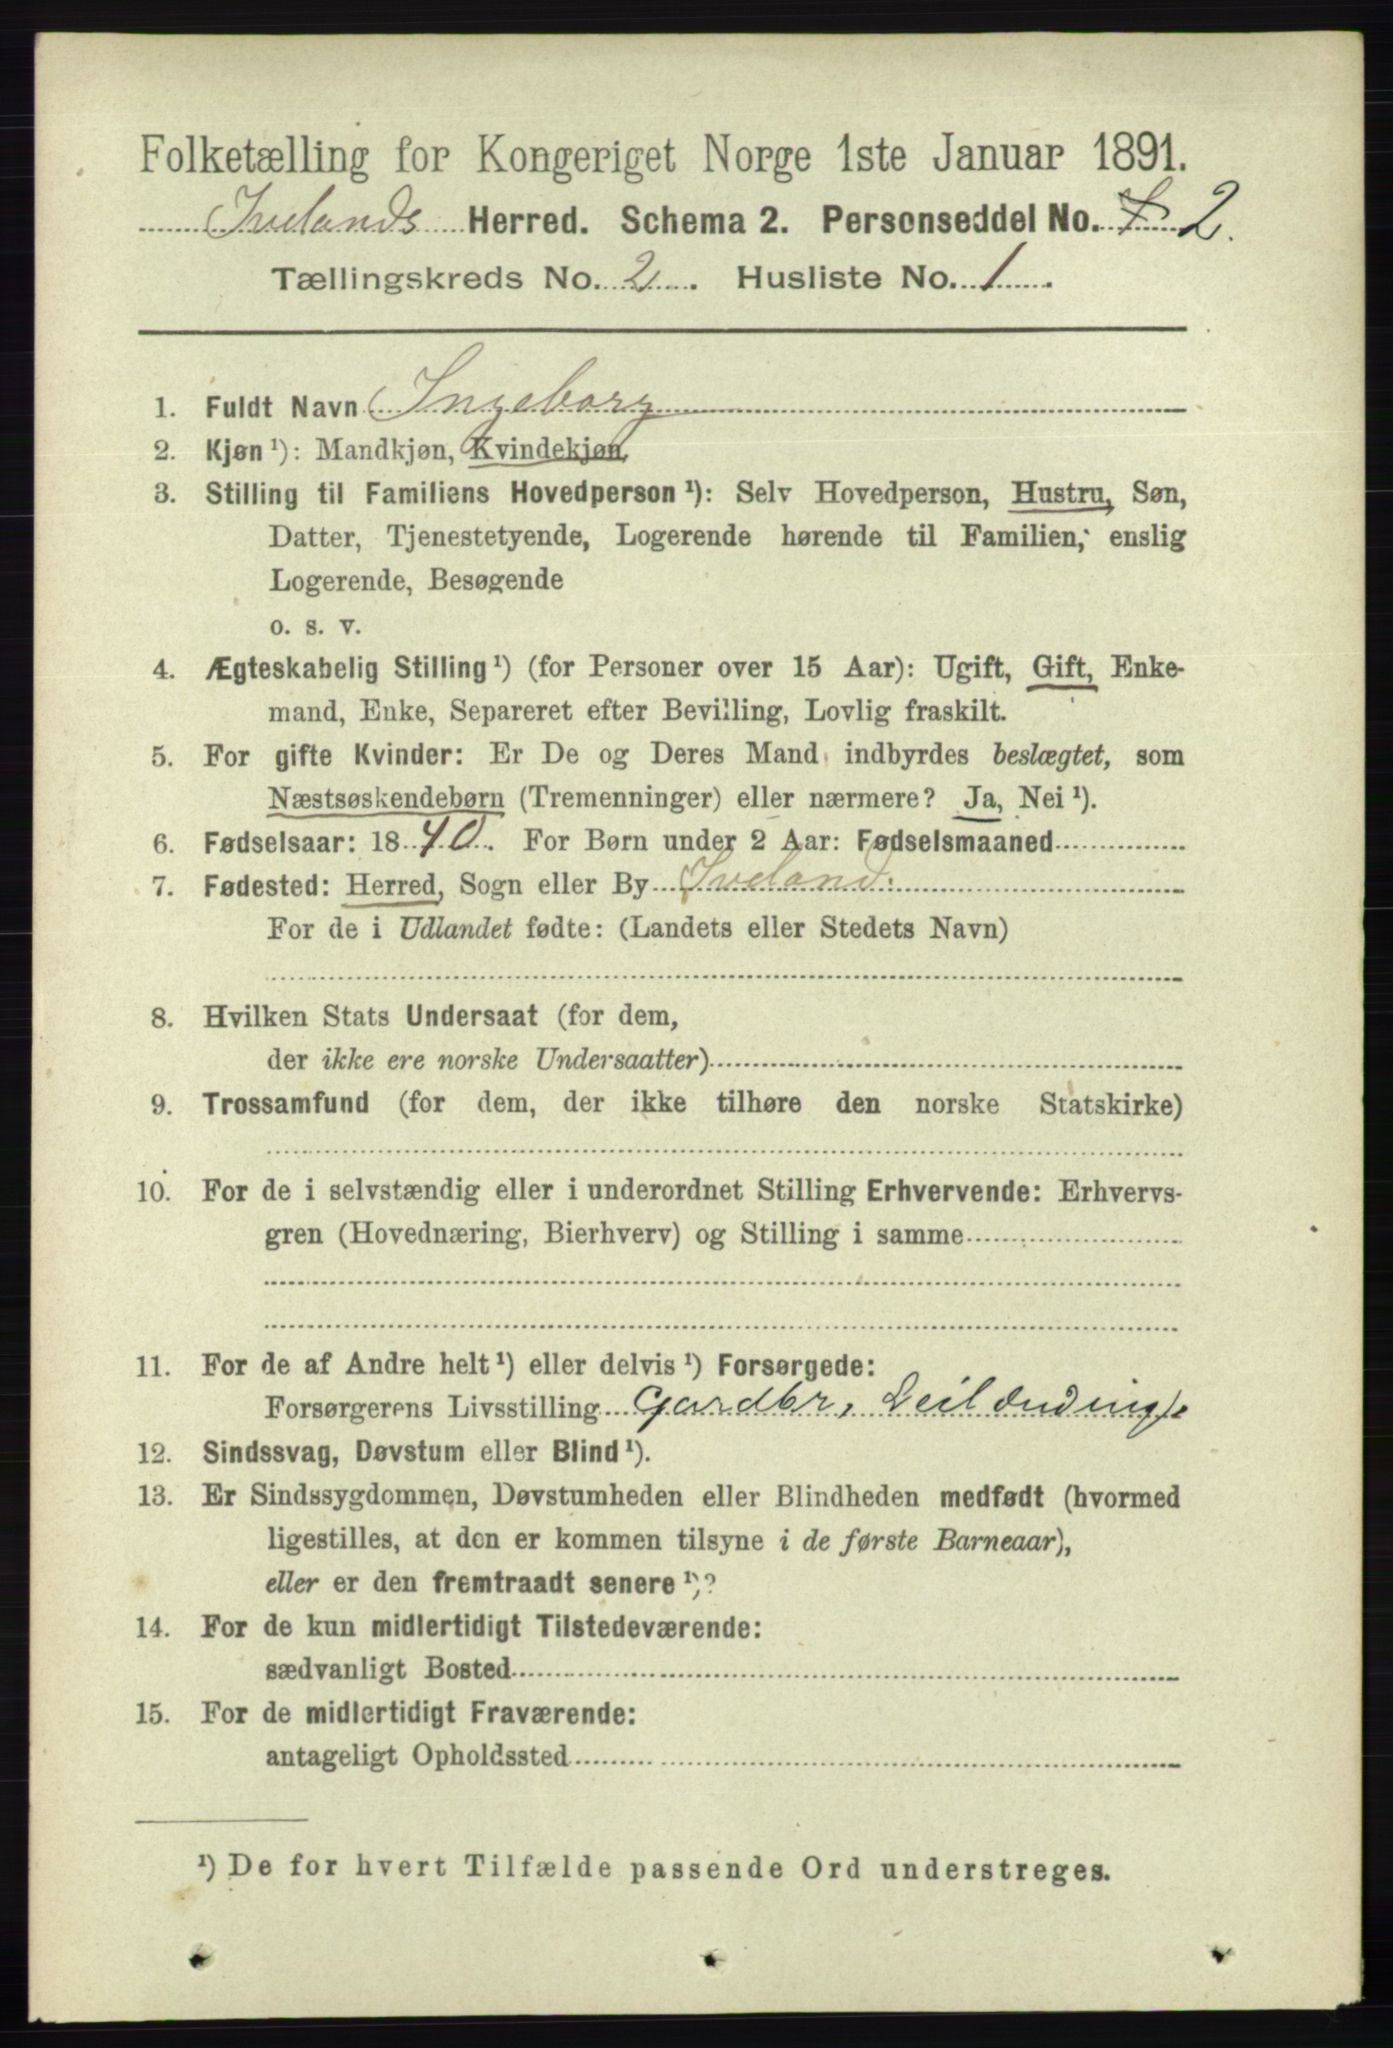 Folketælling for Kongeriget Norge 1ste Januar 1891.
Ivelands Herred. Schema 2. Personseddel No. 2.
Tællingskreds No. 2. Husliste No. 1.
1. Fuldt Navn Ingeborg
2. Kjøn¹): Mandkjøn, Kvindekjøn.
3. Stilling til Familiens Hovedperson¹): Selv Hovedperson, Hustru, Søn,
Datter, Tjenestetyende, Logerende hørende til Familien, enslig
Logerende, Besøgende
o. s. v.
4. Ægteskabelig Stilling¹) (for Personer over 15 Aar): Ugift, Gift, Enke-
mand, Enke, Separeret efter Bevilling, Lovlig fraskilt.
5. For gifte Kvinder: Er De og Deres Mand indbyrdes beslægtet, som
Næstsøskendebørn (Tremenninger) eller nærmere? Ja, Nei¹).
6. Fødselsaar: 1840. For Børn under 2 Aar: Fødselsmaaned
7. Fødested: Herred, Sogn eller By Iveland
For de i Udlandet fødte: (Landets eller Stedets Navn)
8. Hvilken Stats Undersaat (for dem,
der ikke ere norske Undersaatter)
9. Trossamfund (for dem, der ikke tilhøre den norske Statskirke)
10. For de i selvstændig eller i underordnet Stilling Erhvervende: Erhvervs-
gren (Hovednæring, Bierhverv) og Stilling i samme
11. For de af Andre helt¹) eller delvis¹) Forsørgede:
Forsørgerens Livsstilling Gardbr, Leilænding
12. Sindssvag, Døvstum eller Blind¹).
13. Er Sindssygdommen, Døvstumheden eller Blindheden medfødt (hvormed
ligestilles, at den er kommen tilsyne i de første Barneaar),
eller er den fremtraadt senere¹)?
14. For de kun midlertidigt Tilstedeværende:
sædvanligt Bosted
15. For de midlertidigt Fraværende:
antageligt Opholdssted
¹) De for hvert Tilfælde passende Ord understreges.